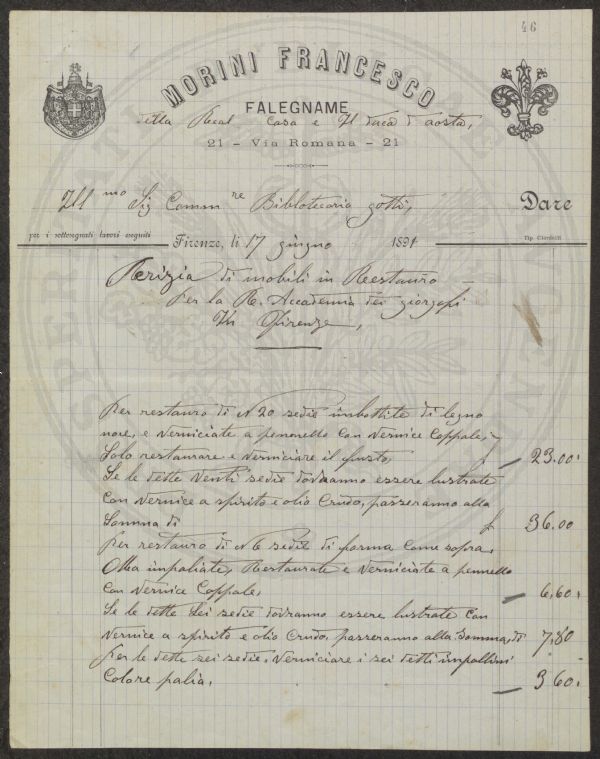 46
MORINI FRANCESCO
FALEGNAME
della Real Casa e Il duca d'aosta,
21 - Via Romana - 21
Ill mo Sig Comm re Bibliotecario gotti, Dare
per i sottosegnati lavori eseguiti Firenze, li 17 giugno 1891 Tip. Ciardelli
Perizia di mobili in Restauro
Per la R. Accademia dei giorgofi
In Firenze,
Per restauro di N 20 sedie imbottite di legno
noce, e verniciate a penorello Con Vernice Coppale,
Solo restaurare e verniciare il fusto, £ 23.00
Se le dette venti sedie dovranno essere lustrate
Con vernice a spirito e olio Crudo, passeranno alla
Somma di £ 36.00
Per restauro di N 6 sedie di forma Come sopra,
Ma impaliate, Restaurate e verniciate a pennello
Con Vernice Coppale, 6,60
Se le dette Sei sedie dovranno essere lustrate Con
Vernice a spirito e olio Crudo, passeranno alla Somma di 7,80
Per le dette sei sedie, Verniciare i sei detti impallini
Colore palia, 3 60